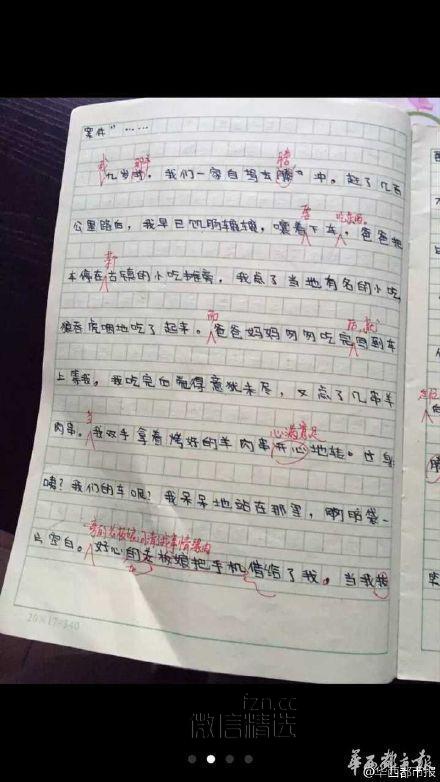 案件"……
几岁时。我们一家自驾去腾中。赶了几百
公里路后，我早已饥肠辘辘，嚷着下车。爸爸把
车停在古镇的小吃摊旁，我点了当地有名的小吃
狼吞虎咽地吃了起来。爸爸妈妈匆匆吃完回到车
上等我。我吃完们觉得意犹未尽，又点了几串羊
肉串。我双手拿着烤好的羊肉串开心地转过身
咦？我们的车呢？我呆呆地站在那里，脑袋一
片空白。好心的老板娘把手机借给了我。当我
心满意足
吃东西。
20×17=340
fzn.cc
微信精选
@华西都市报
华西都市报